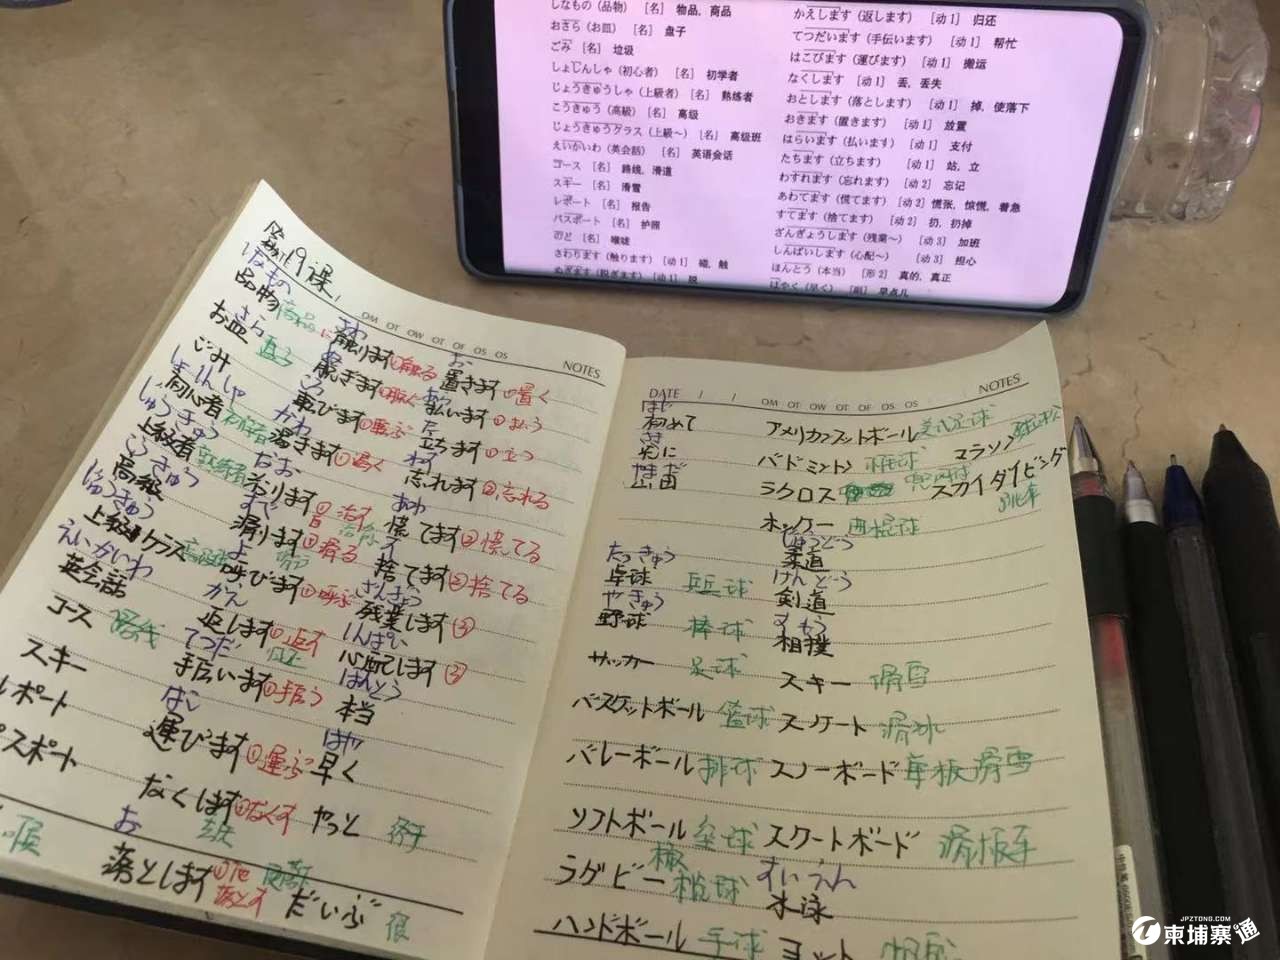 しなもの（品物） ［名］ 物品，商品
おさら（お皿） ［名］ 盘子
ごみ ［名］ 垃圾
しょしんしゃ（初心者） ［名］ 初学者
じょうきゅうしゃ（上級者） ［名］ 熟练者
こうきゅう（高級） ［名］ 高级
じょうきゅうクラス（上級～） ［名］ 高级班
えいかいわ（英会話） ［名］ 英语会话
コース ［名］ 路线，滑道
スキー ［名］ 滑雪
レポート ［名］ 报告
パスポート ［名］ 护照
のど ［名］ 喉咙
さわります（触ります） ［动1］ 碰，触
ぬぎます（脱ぎます） ［动1］ 脱
かえします（返します） ［动1］ 归还
てつだいます（手伝います） ［动1］ 帮忙
はこびます（運びます） ［动1］ 搬运
なくします ［动1］ 丢，丢失
おとします（落とします） ［动1］ 掉，使落下
おきます（置きます） ［动1］ 放置
はらいます（払います） ［动1］ 支付
たちます（立ちます） ［动1］ 站，立
わすれます（忘れます） ［动2］ 忘记
あわてます（慌てます） ［动2］ 慌张，惊慌，着急
すてます（捨てます） ［动2］ 扔，扔掉
ざんぎょうします（残業～） ［动3］ 加班
しんぱいします（心配～） ［动3］ 担心
ほんとう（本当） ［形2］ 真的，真正
はやく（早く） ［副］ 早点儿
第19课
OM OT OW OT OF OS OS
NOTES
しなもの
品物 商品
さら
お皿 盘子
ごみ
しょしんしゃ
初心者 初学者
じょうきゅう
上級者 熟练者
こうきゅう
高級
じょうきゅう
上級クラス 高级班
えいかいわ
英会話
コース 路线
スキー
レポート
パスポート
喉
さわ
触ります①触る
ぬ
脱ぎます①脱ぐ
ころ
転びます①転ぶ
かわ
渇きます①渇く
なお
すべ
滑ります①滑る
よ
呼びます①呼ぶ
かえ
返します①返す 归还
てつだ
手伝います①手伝う
はこ
運びます①運ぶ
なくします①なくす
お
落とします①落とす
お
置きます①置く
はら
払います①払う
た
立ちます①立つ
わす
忘れます②忘れる
あわ
慌てます②慌てる
す
捨てます②捨てる
ざんぎょう
残業します③
しんぱい
心配します③
ほんとう
本当
はや
早く
やっと 终于
だいぶ 很
DATE / / OM OT OW OT OF OS OS
NOTES
はじ
初めて
さき
先に
やまだ
山田
たっきゅう
卓球 乒乓球
やきゅう
野球 棒球
サッカー 足球
バスケットボール 篮球
バレーボール 排球
ソフトボール 垒球
ラグビー 橄榄球
ハンドボール 手球
アメリカンフットボール 美式足球
バドミントン 羽毛球 マラソン 马拉松
ラクロス スカイダイビング
ホッケー 曲棍球
じゅうどう
柔道
けんどう
剣道
すもう
相撲
スキー 滑雪
スケート 滑冰
スノーボード 单板滑雪
スケートボード 滑板车
すいえい
水泳
ヨット 帆船
JPZTONG.COM
柬埔寨通